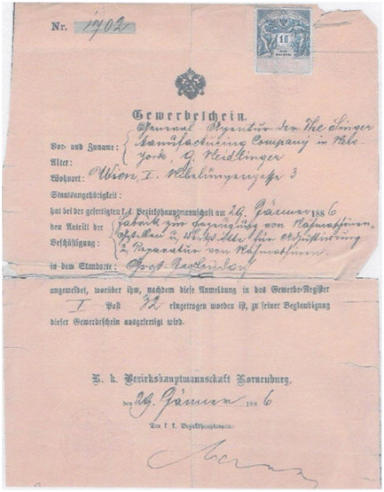 Nr. 1702
10
Gewerbeschein.
General Agentur der The Singer
Vor- und Zuname: Manufacturing Company in New-
Alter: York, G. Neidlinger
Wohnort: Wien, I. Nibelungengasse 3
Staatsangehörigkeit:
hat bei der gefertigten k. k. Bezirkshauptmannschaft am 29. Jänner 1886
den Antritt der Fabrik zur Erzeugung von Nähmaschinen,
Beschäftigung: u. Reparatur von Nähmaschinen.
in dem Standorte:
angemeldet, worüber ihm, nachdem diese Anmeldung in das Gewerbe-Register
I Post 32 eingetragen worden ist, zu seiner Beglaubigung
dieser Gewerbeschein ausgefertigt wird.
K. k. Bezirkshauptmannschaft Korneuburg,
den 29. Jänner 1886
Der k. k. Bezirkshauptmann: